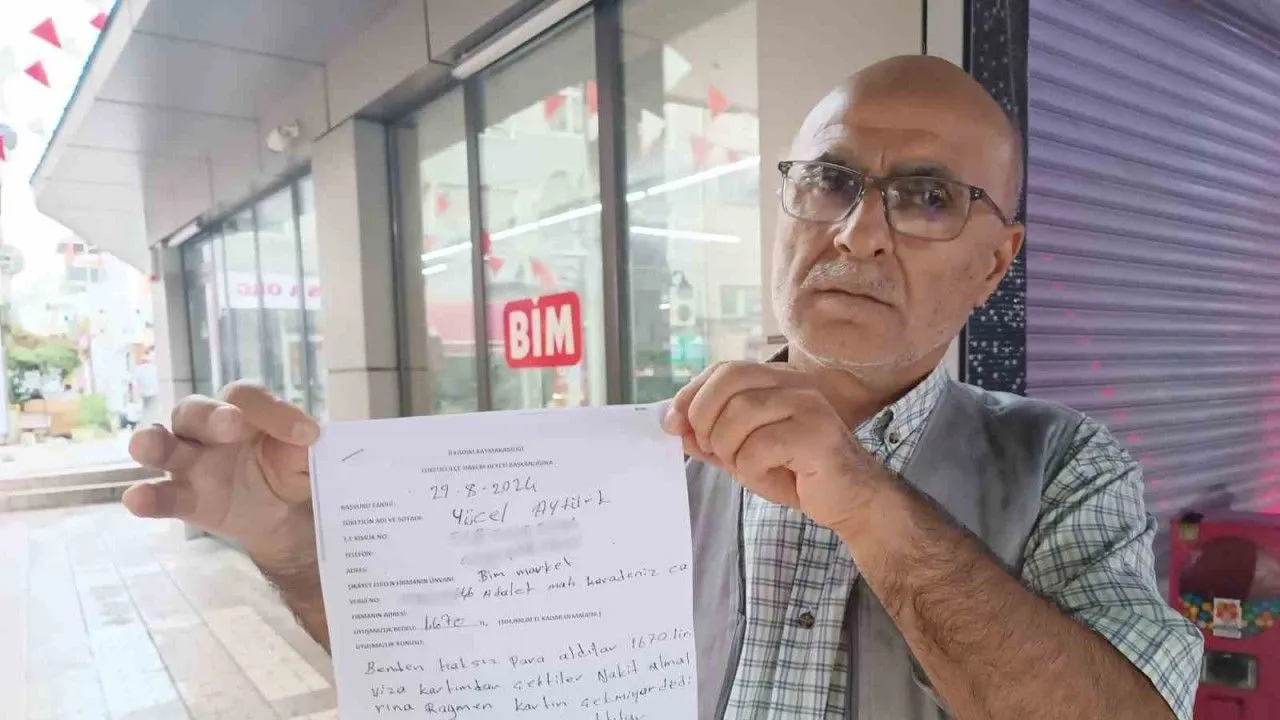 BİM
İLKADIM KAYMAKAMLIĞI
TÜKETİCİ İLÇE HAKEM HEYETİ BAŞKANLIĞINA
BAŞVURU TARİHİ: 29-8-2024
TÜKETİCİN ADI VE SOYADI: Yücel Aytürk
T.C KİMLİK NO:
TELEFON:
ADRES:
ŞİKAYET EDİLEN FİRMANIN ÜNVANI: Bim market
VERGİ NO:
FİRMANIN ADRESİ: Adalet mah karadeniz ca
UYUŞMAZLIK BEDELİ: 1670
UYUŞMAZLIK KONUSU:
Benden haksız Para aldılar 1670 lira
viza kartımdan çektiler Nakit almal
rına Rağmen kartın çekmiyor dedi